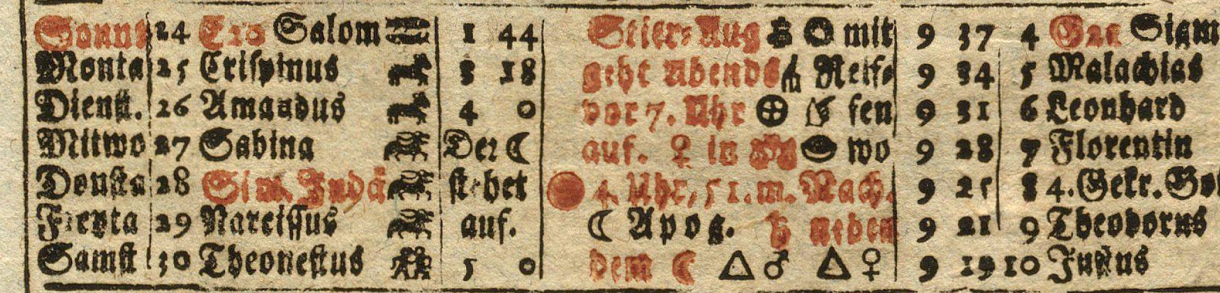 Sonnt 24 E20 Salom 1 44 Stier-Aug mit 9 37 4 G22 Sigm
Monta 25 Crispinus 3 18 geht Abends Reife 9 34 5 Malachias
Dienst. 26 Amandus 4 0 vor 7. Uhr fen 9 31 6 Leonhard
Mitwo 27 Sabina Der ☾ auf. ♀ in wo 9 28 7 Florentin
Donsta 28 Sim. Judä stehet 4. Uhr, 51. m. Nach. 9 25 8 4. Gekr.
Freyta 29 Narcissus auf. ☾ Apog. ♄ neben 9 21 9 Theodorus
Samst 30 Theonestus 5 0 dem ☾ △ ♂ △ ♀ 9 19 10 Justus